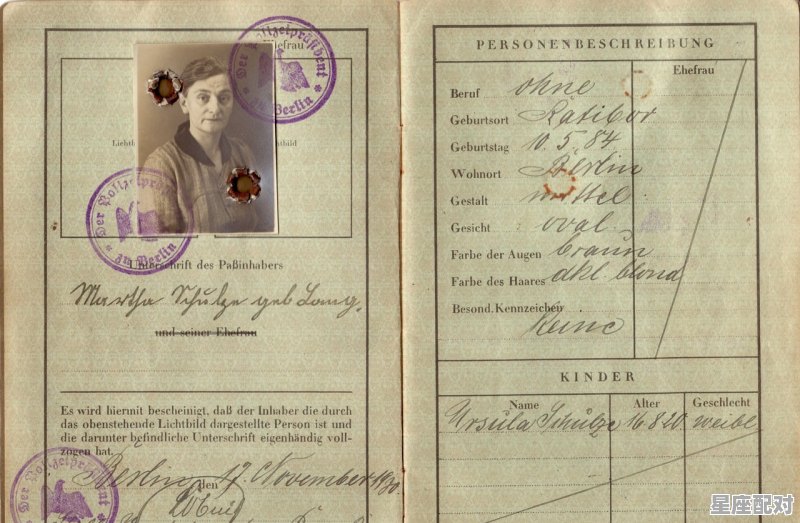 Der Polizeipräsident
zu Berlin
Ehefrau
Lichtbild
Der Polizeipräsident
zu Berlin
Unterschrift des Paßinhabers
Martha Schulze geb Lang.
und seiner Ehefrau
Es wird hiermit bescheinigt, daß der Inhaber die durch
das obenstehende Lichtbild dargestellte Person ist und
die darunter befindliche Unterschrift eigenhändig voll-
zogen hat.
Berlin, den 17. November 1930
Der Polizeipräsident
PERSONENBESCHREIBUNG
Ehefrau
Beruf ohne
Geburtsort Ratibor
Geburtstag 10.5.84
Wohnort Berlin
Gestalt mittel
Gesicht oval
Farbe der Augen braun
Farbe des Haares dkl. blond
Besond. Kennzeichen
Keine
KINDER
Name Alter Geschlecht
Ursula Schulze 16.8.20 weibl.
星座配对